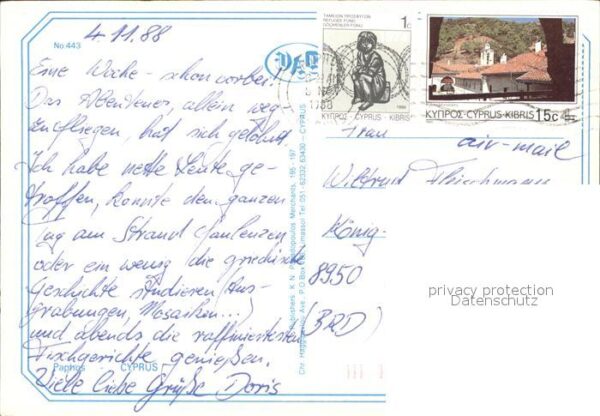 4.11.88
No. 443
Eine Woche - schon vorbei!
Das Abenteuer, allein weg-
zufliegen, hat sich gelohnt.
Ich habe nette Leute ge-
troffen, konnte den ganzen
Tag am Strand faulenzen
oder ein wenig die griechische
Geschichte studieren (Aus-
grabungen, Mosaiken...)
und abends die raffiniertesten
Fischgerichte genießen.
Paphos CYPRUS
Viele liebe Grüße Doris
K. N. Papadopoulos, Merchants, 195 - 197,
Limassol Tel: 051-62332 63430 - CYPRUS
1c
ΚΥΠΡΟΣ KIBRIS
1988
ΚΥΠΡΟΣ-CYPRUS-KIBRIS 15c
Frau
air-mail
Fleischmann
König-
8950
(BRD)
privacy protection
Datenschutz